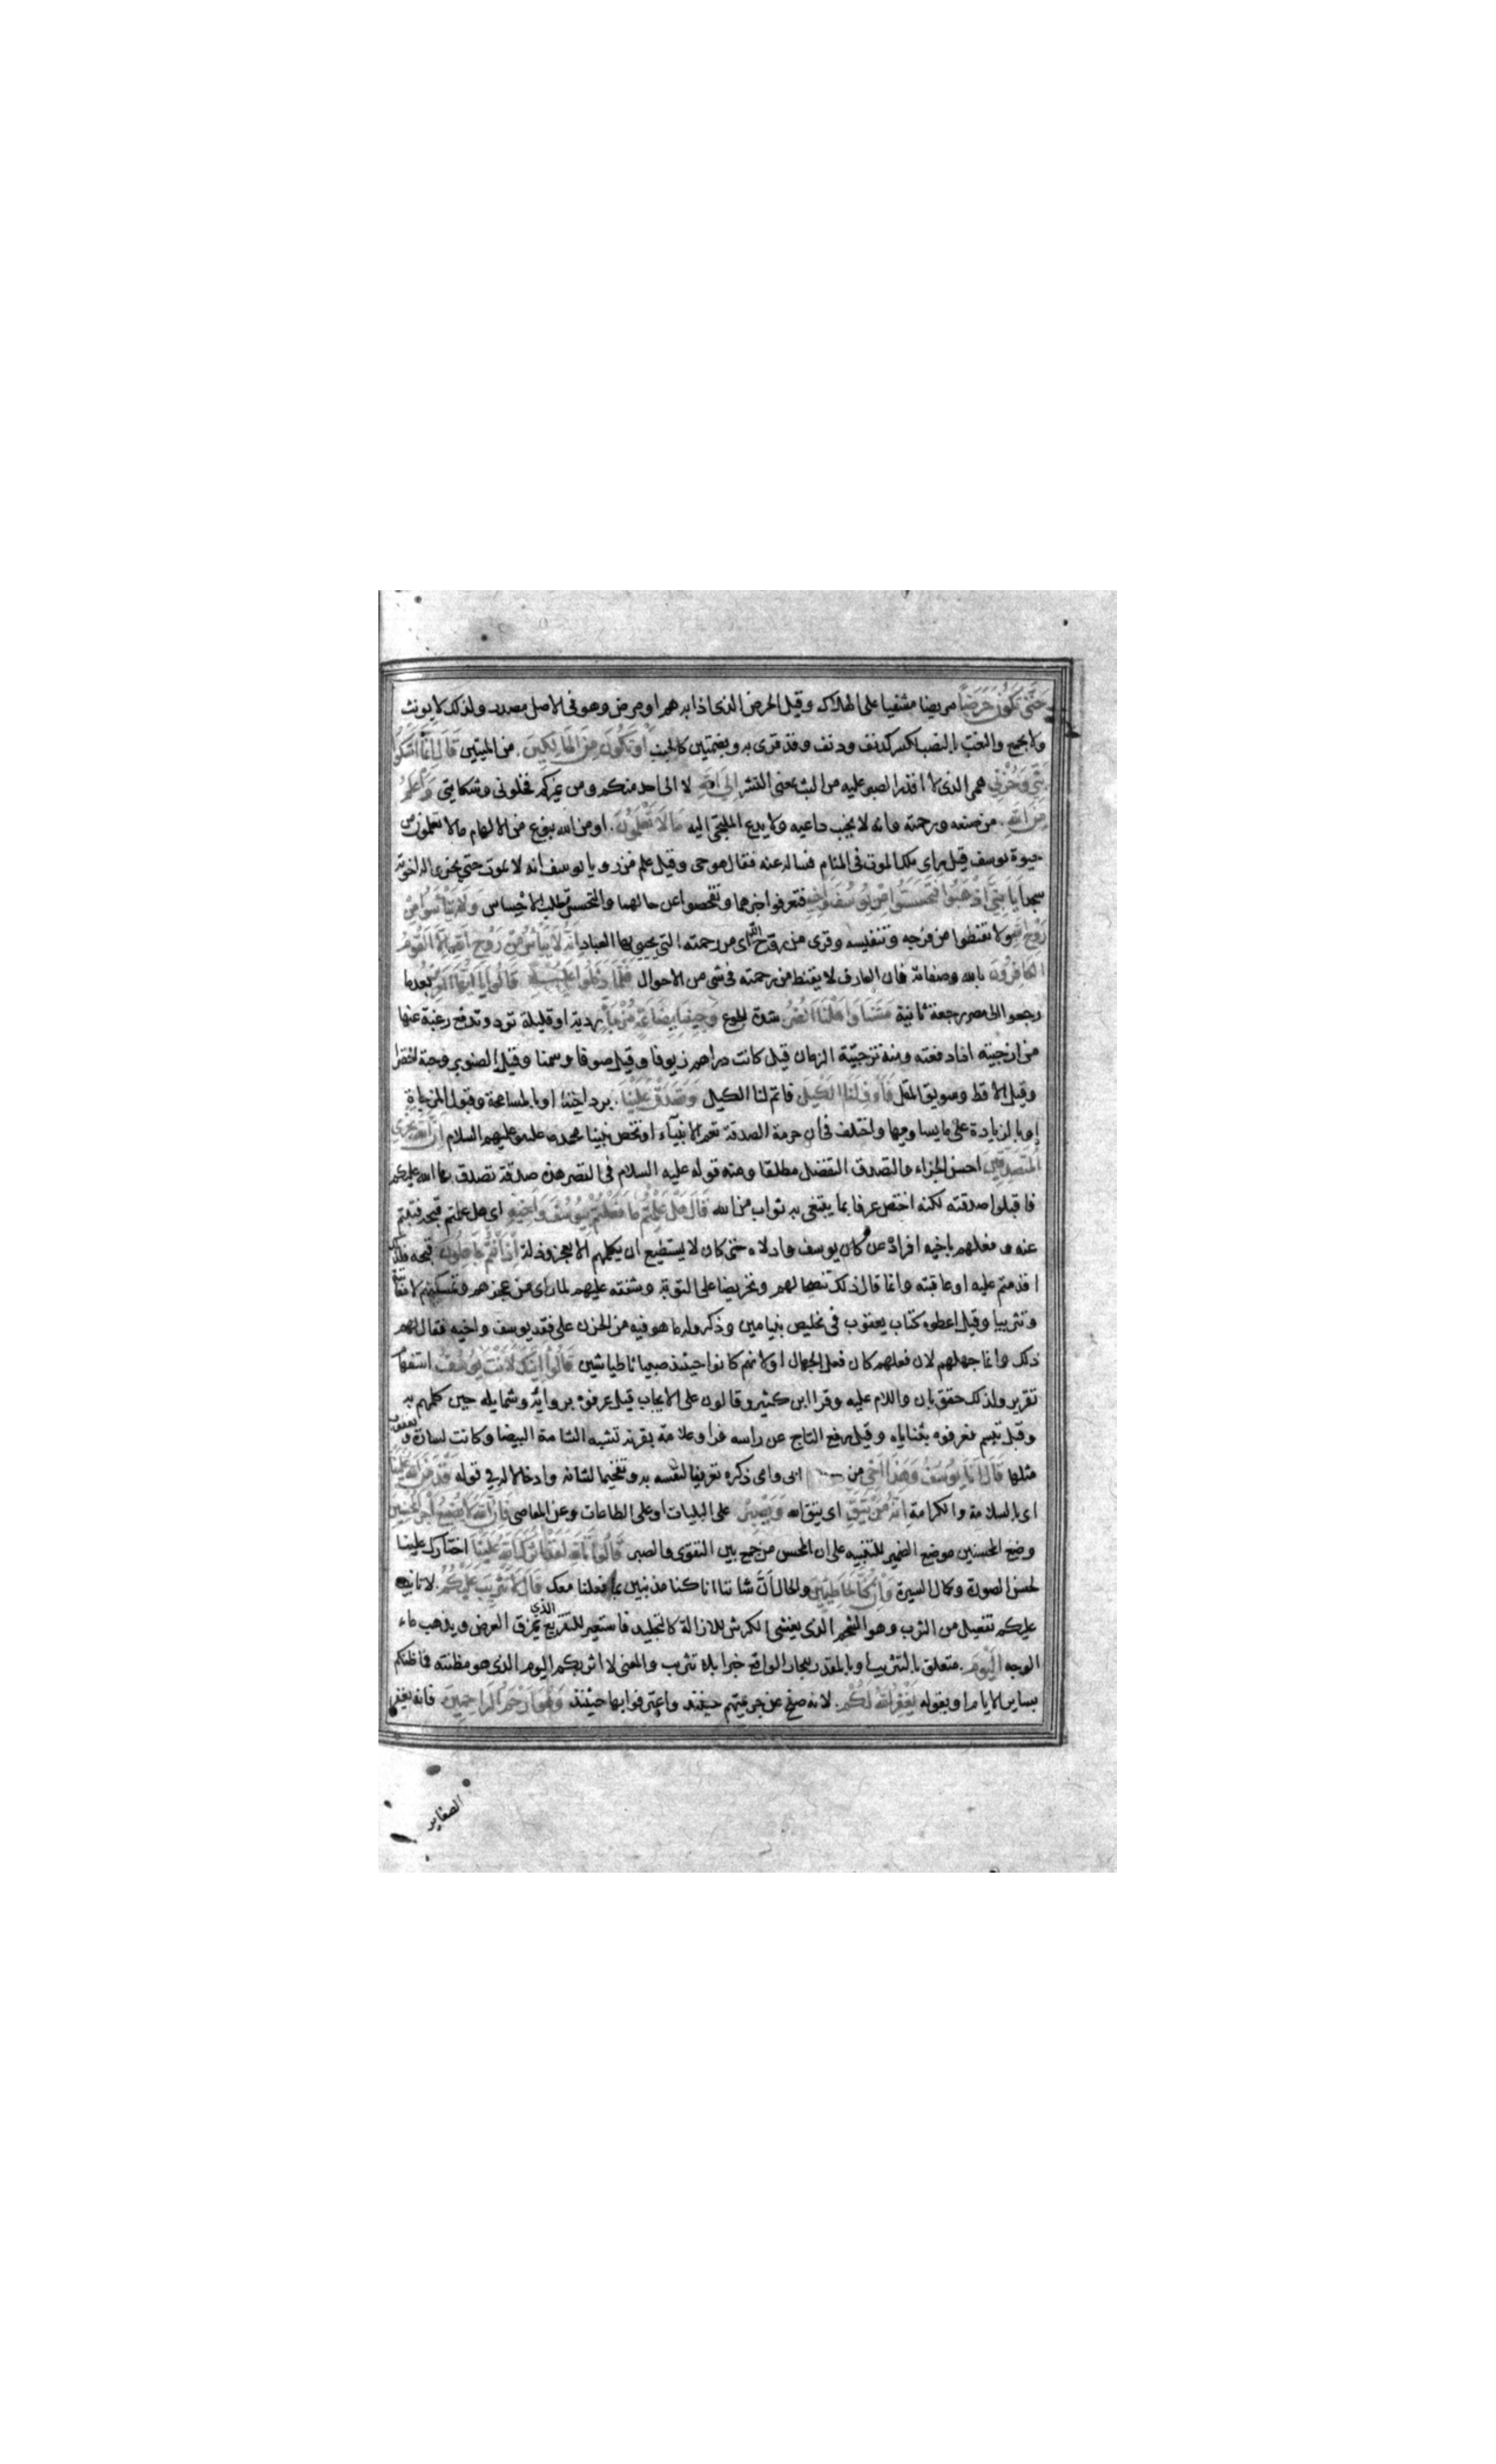 حَتَّى تَكُونَ حَرَضًا مريضا مشفيا على الهلاك وقيل الحرض الذى اذابه هم او مرض وهو فى الاصل مصدر ولذلك لا يونث
ولا يجمع والنعت بالكسر كدنف ودنف وقد قرى به وبضمتين كالجنب أَوْ تَكُونَ مِنَ الْهَالِكِينَ من الميتين قَالَ إِنَّمَا أَشْكُوا
بَثِّي وَحُزْنِي همى الذى لا اقدر الصبر عليه من البث بمعنى النشر إِلَى اللَّهِ لا الى احد منكم ومن غيركم فخلونى وشكايتى وَأَعْلَمُ
مِنَ اللَّهِ من صنعه ورحمته وانه لا يخيب داعيه ولا يدع الملتجى اليه مَا لَا تَعْلَمُونَ او من الله بنوع من الالهام ما لا تعلمون من
حيوة يوسف قيل راى ملك الموت فى المنام فساله عنه فقال هو حى وقيل علم من رويا يوسف انه لا يموت حتى يخر له اخوته
سجدا يَا بَنِيَّ اذْهَبُوا فَتَحَسَّسُوا مِنْ يُوسُفَ وَأَخِيهِ فتعرفوا خبرهما وتفحصوا عن حالهما والتحسس طلب الاحساس وَلَا تَيْأَسُوا مِنْ
رَوْحِ اللَّهِ ولا تقنطوا من فرجه وتنفيسه وقرى من روح الله اى من رحمته التى يحيى بها العباد إِنَّهُ لَا يَيْأَسُ مِنْ رَوْحِ اللَّهِ إِلَّا الْقَوْمُ
الْكَافِرُونَ بالله وصفاته فان العارف لا يقنط من رحمته فى شى من الاحوال فَلَمَّا دَخَلُوا عَلَيْهِ قَالُوا يَا أَيُّهَا الْعَزِيزُ بعدما
رجعوا الى مصر رجعة ثانية مَسَّنَا وَأَهْلَنَا الضُّرُّ شدة الجوع وَجِئْنَا بِبِضَاعَةٍ مُزْجَاةٍ ردية او قليلة ترد وتدفع رغبة عنها
من ازجيته اذا دفعته ومنه تزجية الزمان قيل كانت دراهم زيوفا وقيل صوفا وسمنا وقيل الصنوبر وحبة الخضرا
وقيل الاقط وسويق المقل فَأَوْفِ لَنَا الْكَيْلَ فاتم لنا الكيل وَتَصَدَّقْ عَلَيْنَا برد اخينا او بالمسامحة وقبول المزجاة
او بالزيادة على ما يساويها واختلف فى ان حرمة الصدقة تعم الانبيآء او تختص نبينا محمد عليه وعليهم السلام إِنَّ اللَّهَ يَجْزِي
الْمُتَصَدِّقِينَ احسن الجزاء والتصدق التفضل مطلقا ومنه قوله عليه السلام فى القصر هذه صدقة تصدق بها الله عليكم
فاقبلوا صدقته لكنه اختص عرفا بما يبتغى به ثواب من الله قَالَ هَلْ عَلِمْتُمْ مَا فَعَلْتُمْ بِيُوسُفَ وَأَخِيهِ اى هل علمتم قبحه فتبتم
عنه وفعلهم باخيه افراده عن يوسف واذلاله حتى كان لا يستطيع ان يكلمهم الا بعجز وذلة إِذْ أَنْتُمْ جَاهِلُونَ قبحه فلذلك
اقدمتم عليه او عاقبته وانما قال ذلك تنصحا لهم وتحريضا على التوبة وشفقة عليهم لما راى من عجزهم وتمسكنهم لا معاتبة
وتثريبا وقيل اعطوه كتاب يعقوب فى تخليص بنيامين وذكروا له ما هو فيه من الحزن على فقد يوسف واخيه فقال لهم
ذلك وانما جهلهم لان فعلهم كان فعل الجهال او لانهم كانوا حينئذ صبيانا طياشين قَالُوا أَإِنَّكَ لَأَنْتَ يُوسُفُ استفهام
تقرير ولذلك حقق بان واللام عليه وقرا ابن كثير وقالون على الايجاب قيل عرفوه بروائه وشمايله حين كلمهم به
وقيل تبسم فعرفوه بثناياه وقيل رفع التاج عن راسه فراوا علامة بقرنه تشبه الشامة البيضا وكانت لسارة ويعقوب
مثلها قَالَ أَنَا يُوسُفُ وَهَذَا أَخِي من ابى وامى ذكره تعريفا لنفسه به وتفخيما لشانه وادخالا له فى قوله قَدْ مَنَّ اللَّهُ عَلَيْنَا
اى بالسلامة والكرامة إِنَّهُ مَنْ يَتَّقِ اى يتق الله وَيَصْبِرْ على البليات او على الطاعات وعن المعاصى فَإِنَّ اللَّهَ لَا يُضِيعُ أَجْرَ الْمُحْسِنِينَ
وضع المحسنين موضع الضمير للتنبيه على ان المحسن من جمع بين التقوى والصبر قَالُوا تَاللَّهِ لَقَدْ آثَرَكَ اللَّهُ عَلَيْنَا اختارك علينا
لحسن الصورة وكمال السيرة وَإِنْ كُنَّا لَخَاطِئِينَ والحال ان شاننا انا كنا مذنبين بما فعلنا معك قَالَ لَا تَثْرِيبَ عَلَيْكُمُ لا تانيب
عليكم تفعيل من الثرب وهو الشحم الذى يغشى الكرش للازالة كالتجليد فاستعير للتقريع الذى يمزق العرض ويذهب ماء
الوجه الْيَوْمَ متعلق بالتثريب او بالمقدر للجار الواقع خبرا للا تثريب والمعنى لا اثربكم اليوم الذى هو مظنته فما ظنكم
بساير الايام او بقوله يَغْفِرُ اللَّهُ لَكُمْ لانه صفح عن جريمتهم حينئذ واعترفوا بها حينئذ وَهُوَ أَرْحَمُ الرَّاحِمِينَ فانه يغفر
الصغاير